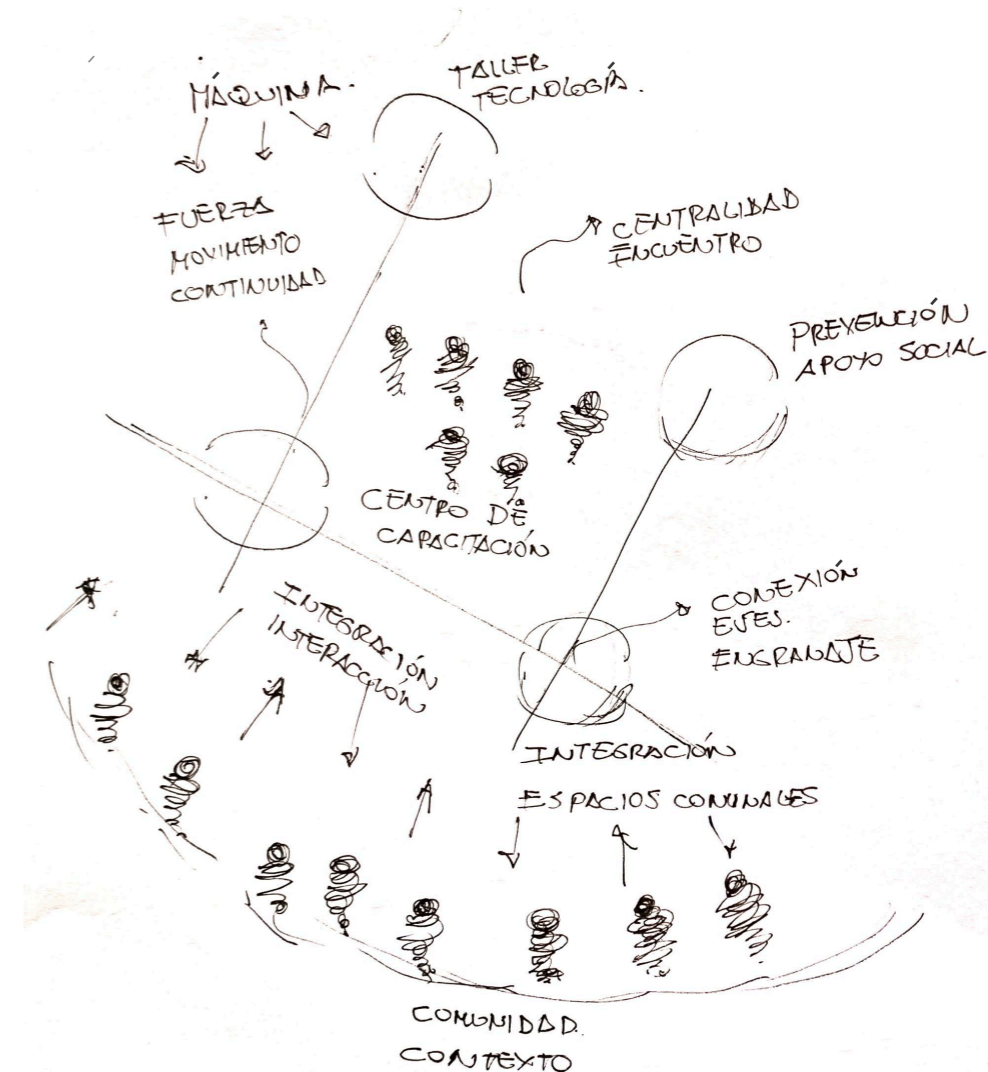 MÁQUINA.
TALLER
TECNOLOGÍA.
FUERZA
MOVIMIENTO
CONTINUIDAD
CENTRALIDAD
ENCUENTRO
PREVENCIÓN
APOYO SOCIAL
CENTRO DE
CAPACITACIÓN
INTEGRACIÓN
INTERACCIÓN
CONEXIÓN
EJES.
ENGRANAJE
INTEGRACIÓN
ESPACIOS COMUNALES
COMUNIDAD.
CONTEXTO